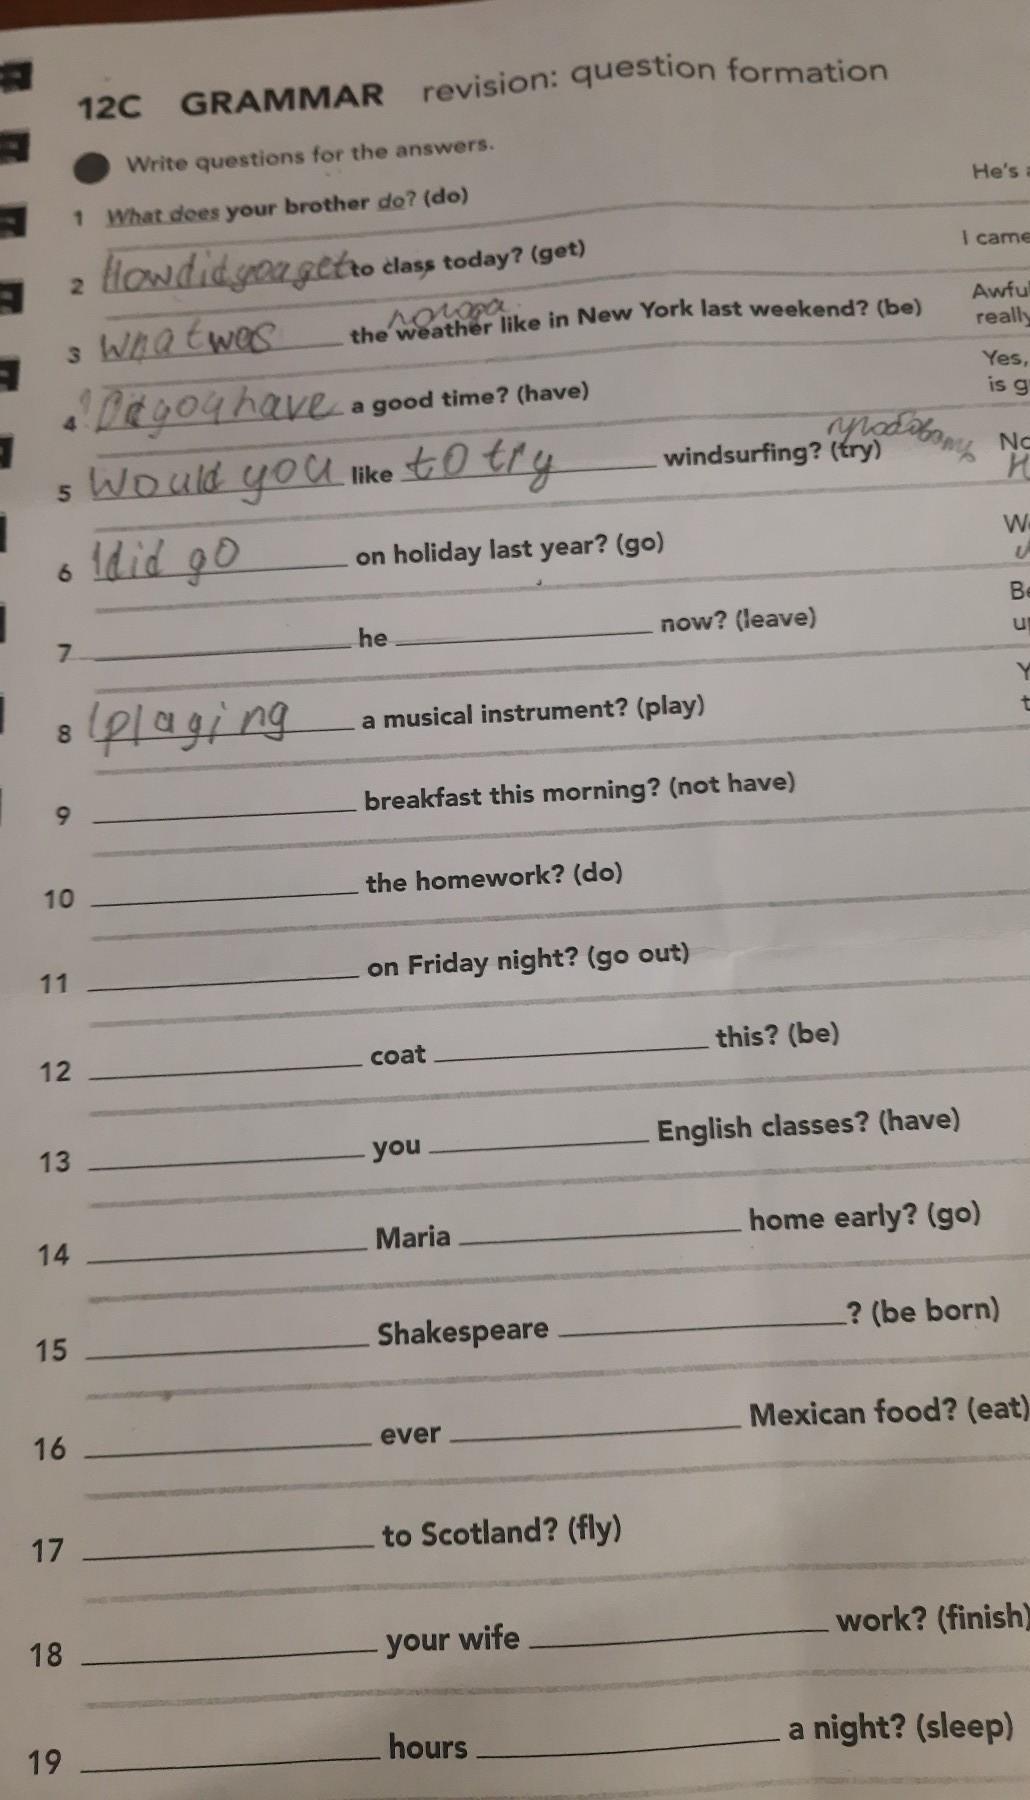 12C GRAMMAR revision: question formation
Write questions for the answers.
1 What does your brother do? (do) He's
2 How did you get to class today? (get) I came
погода
3 What was the weather like in New York last weekend? (be) Awful
really
4 a good time? (have) Yes,
is g
5 Would you like to try windsurfing? (try) No
6 did go on holiday last year? (go) W
7 he now? (leave) Be
up
8 plaging a musical instrument? (play) Y
t
9 breakfast this morning? (not have)
10 the homework? (do)
11 on Friday night? (go out)
12 coat this? (be)
13 you English classes? (have)
14 Maria home early? (go)
15 Shakespeare ? (be born)
16 ever Mexican food? (eat)
17 to Scotland? (fly)
18 your wife work? (finish)
19 hours a night? (sleep)